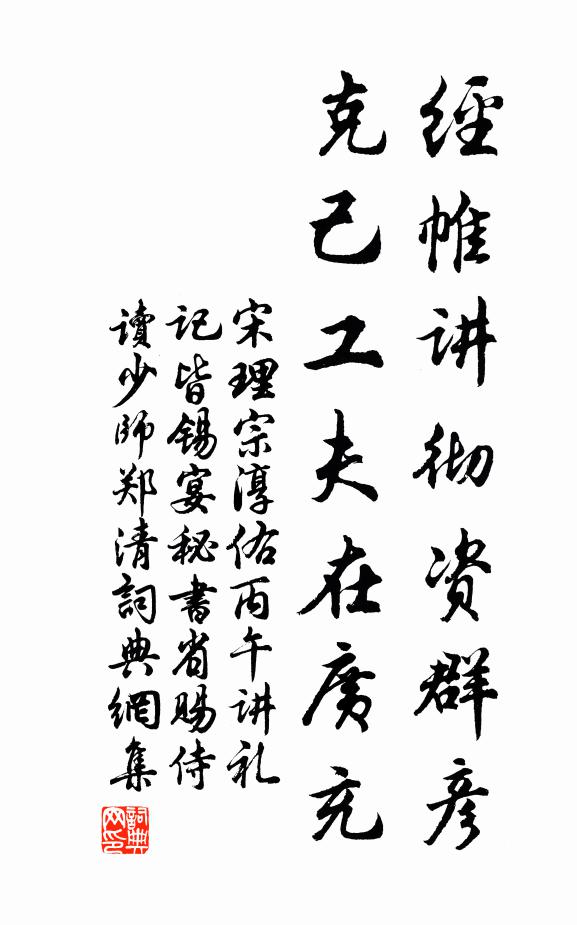 經帷讲彻资群彦
克己工夫在廣充
宋理宗淳佑丙午讲礼
记皆锡宴秘書省賜侍
讀少师郑清詞典網集
詞典网印